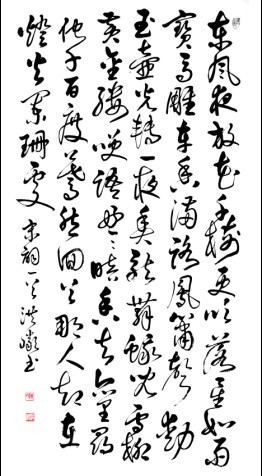 東風夜放花千樹更吹落星如雨
寶馬雕車香滿路鳳簫聲動
玉壺光轉一夜魚龍舞蛾兒雪柳
黃金縷笑語盈々暗香去眾里尋
他千百度驀然回首那人却在
燈火闌珊處 宋詞一首 洪书